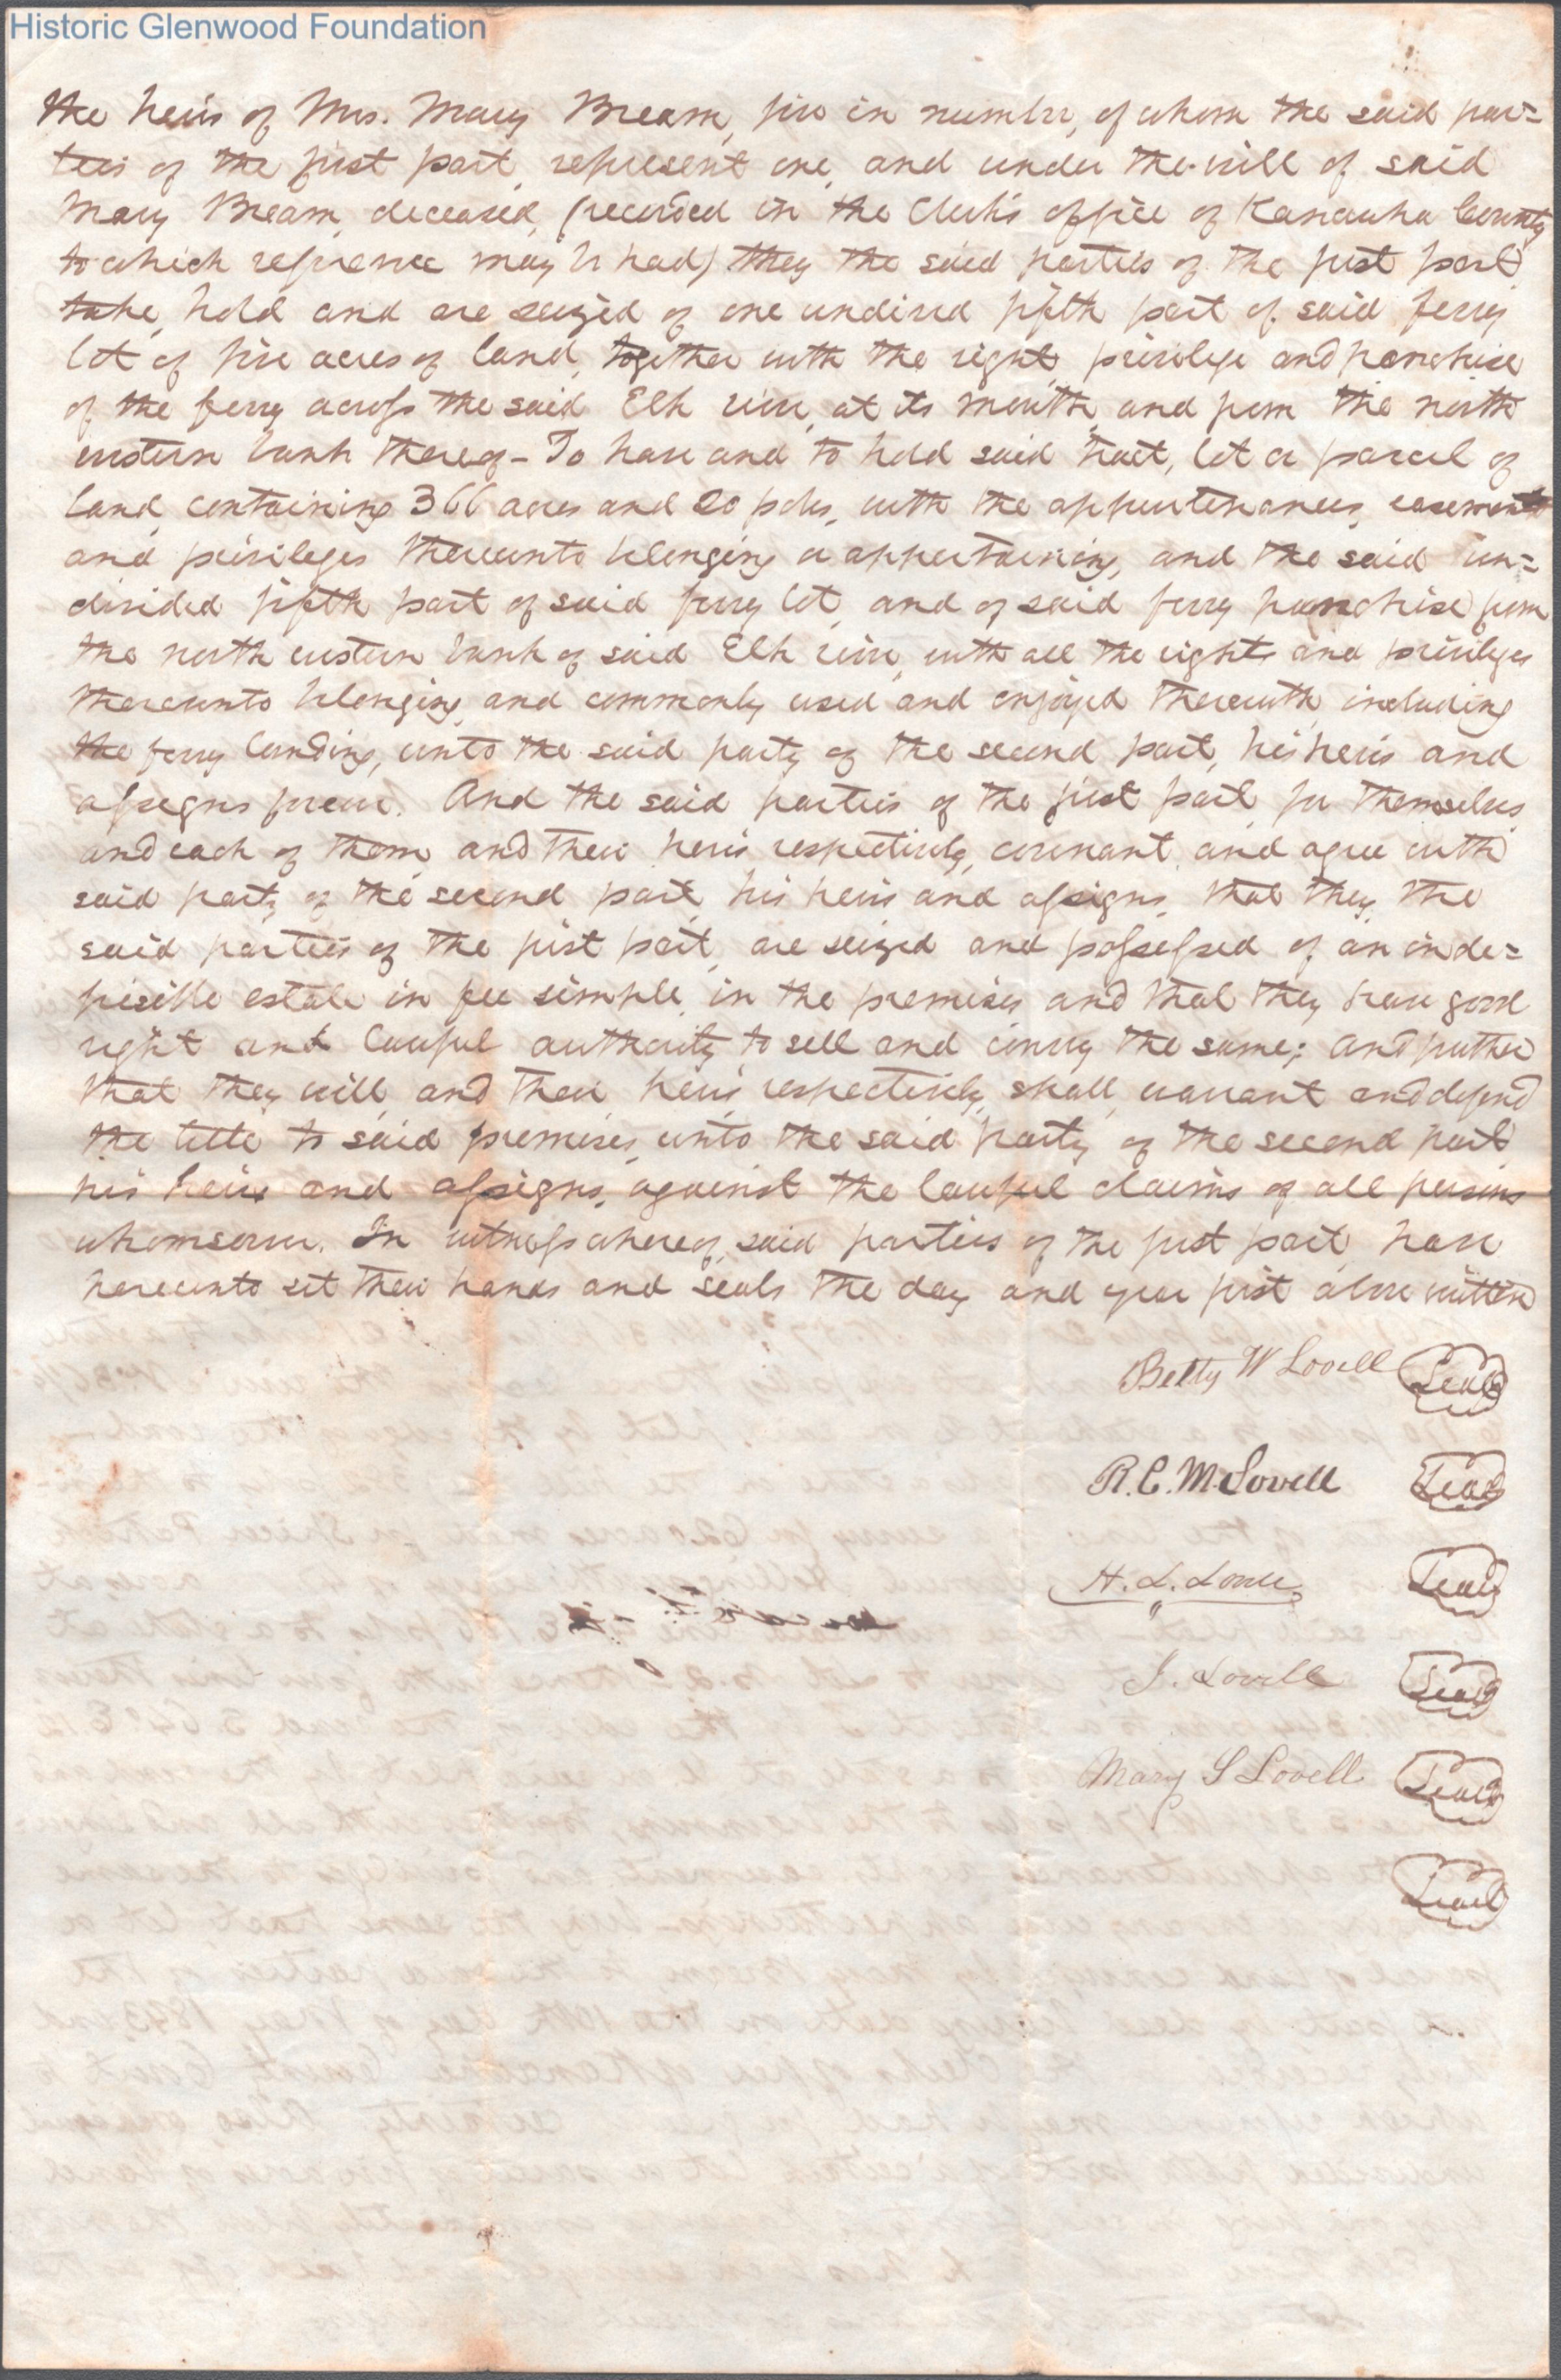 Historic Glenwood Foundation
the heirs of Mrs. Mary Bream, five in number, of whom the said par=
ties of the first part, represent one, and under the will of said
Mary Bream, deceased, (recorded in the Clerk's office of Kanawha County
to which reference may be had) they the said parties of the first part,
take, hold and are seized of one undivided fifth part of said ferry
lot of five acres of land, together with the right, privilege and franchise
of the ferry across the said Elk river, at its mouth, and from the north
eastern bank thereof - To have and to hold said tract, lot or parcel of
land, containing 366 acres and 20 poles, with the appurtenances, easements
and privileges thereunto belonging or appertaining, and the said un=
divided fifth part of said ferry lot, and of said ferry franchise from
the north eastern bank of said Elk river, with all the rights and privileges
thereunto belonging, and commonly used and enjoyed therewith, including
the ferry landing, unto the said party of the second part, his heirs and
assigns forever. And the said parties of the first part, for themselves
and each of them, and their heirs respectively, covenant, and agree with
said party of the second part, his heirs and assigns, that they, the
said parties of the first part, are seized and possessed of an inde=
feasible estate in fee simple, in the premises and that they have good
right and lawful authority to sell and convey the same; and further
that they will, and their heirs, respectively, shall, warrant and defend
the title to said premises, unto the said party of the second part,
his heirs and assigns, against the lawful claims of all persons
whomsoever. In witness whereof, said parties of the first part, have
hereunto set their hands and seals the day and year first above written
Betty W Lovell Seal
R. C. M. Lovell Seal
H. L. Lovell Seal
J. Lovell Seal
Mary S Lovell Seal
Seal